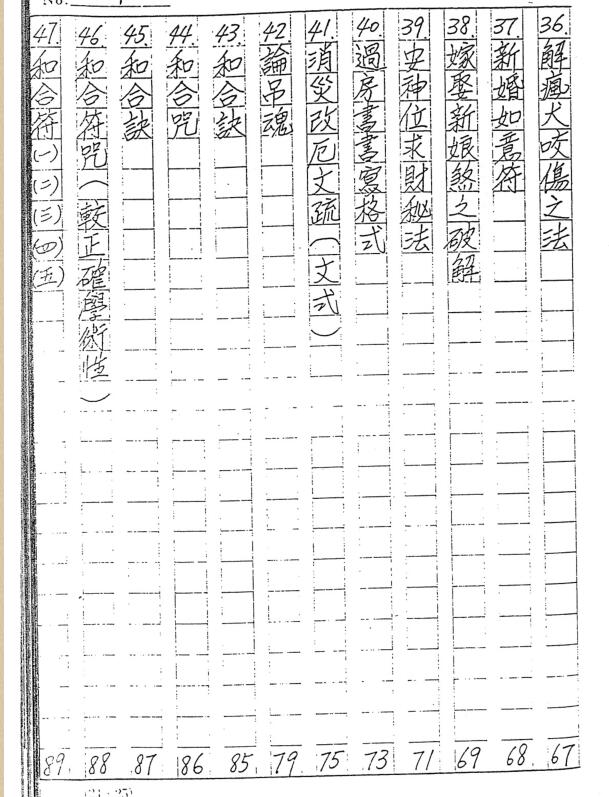 36. 解瘋犬咬傷之法 67
37. 新婚如意符 68
38. 嫁娶新娘煞之破解 69
39. 安神位求財秘法 71
40. 過房書書寫格式 73
41. 消災改厄文疏(文式) 75
42. 論吊魂 79
43. 和合訣 85
44. 和合咒 86
45. 和合訣 87
46. 和合符咒(較正確學術性) 88
47. 和合符(一)(二)(三)(四)(五) 89